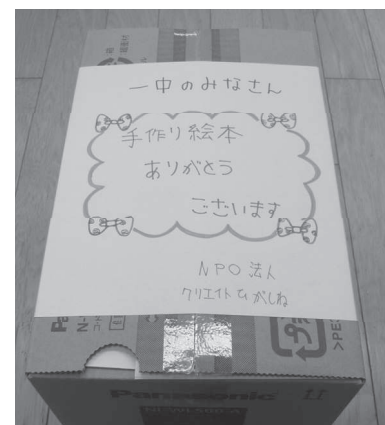 一中のみなさん
手作り絵本
ありがとう
ございます
NPO法人
クリエイトひがしね
Panasonic